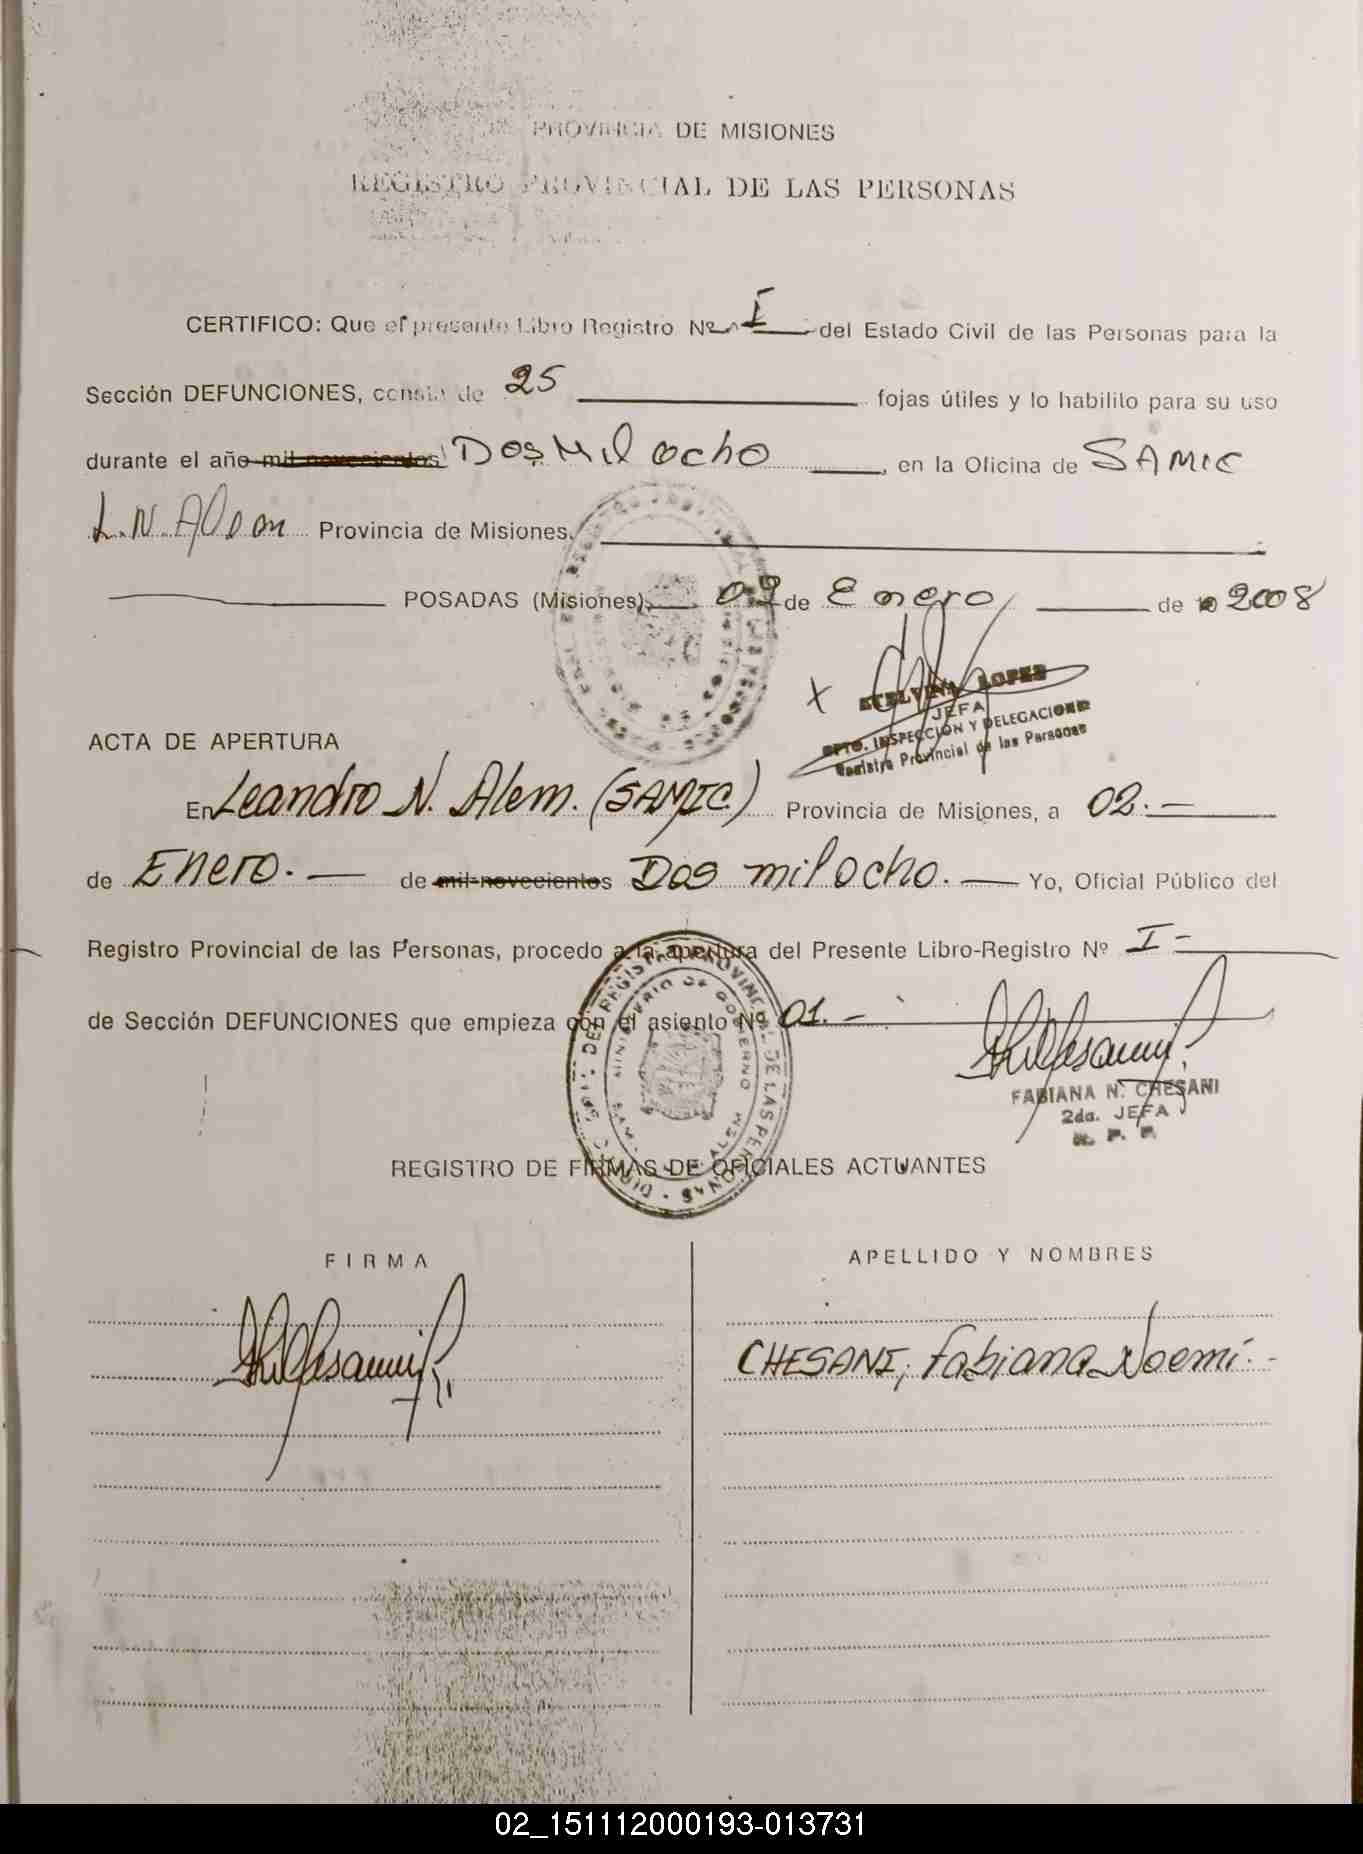 PROVINCIA DE MISIONES
REGISTRO PROVINCIAL DE LAS PERSONAS
CERTIFICO: Que el presente Libro Registro Nº I del Estado Civil de las Personas para la
Sección DEFUNCIONES, consta de 25 fojas útiles y lo habilito para su uso
durante el año mil novecientos Dos Mil ocho, en la Oficina de SAMIC
L.N. Alem Provincia de Misiones.
POSADAS (Misiones), de Enero de 2008
STELVINA LOPEZ
JEFA
DPTO. INSPECCION Y DELEGACIONES
Registro Provincial de las Personas
ACTA DE APERTURA
En Leandro N. Alem. (SAMIC) Provincia de Misiones, a 02.-
de Enero. - de mil novecientos Dos mil ocho. - Yo, Oficial Público del
Registro Provincial de las Personas, procedo a la apertura del Presente Libro-Registro Nº I-
de Sección DEFUNCIONES que empieza con el asiento Nº 01.-
FABIANA N. CHESANI
2da. JEFA
R. P. P.
DEL REGISTRO PROVINCIAL DE LAS PERSONAS
MINISTERIO DE GOBIERNO
ALEM
REGISTRO DE FIRMAS DE OFICIALES ACTUANTES
FIRMA
APELLIDO Y NOMBRES
CHESANI, Fabiana Noemí.-
02_151112000193-013731